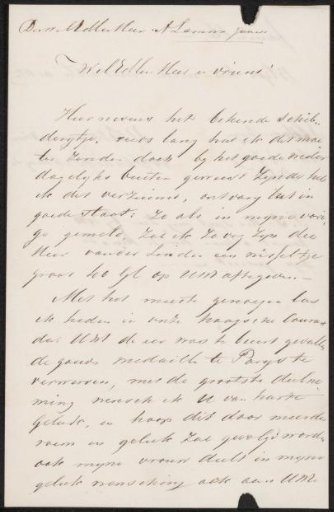 Den WelEdlen Heer A
WelEdlen Heer en vriend!
Hiernevens het bekende schil-
derytje, reeds lang had ik dit moe
ten zenden doch by het goede weder
dagelyks buiten geweest zynde heb
ik dit verzuimd, ontvang het in
goede staat. Zo als in myne vori
ge gemeld zal ik zo vry zyn den
Heer van der Linden een wisseltje
groot 60 gl op UEd aftegeven. —
Met het meeste genoegen las
ik heden in onze Haagsche Couran
dat UEd de eer was te beurt gevalle
de goude medaille te Parys te
verwerven, met de grootste deelne
ming wensch ik U van harte
geluk, en hoop dit door meerde
roem en geluk zal gevolgd worde
ook myne vrouw deelt in myne
geluk wensching ook aan UEd